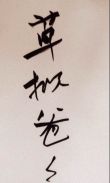 草拟爸々